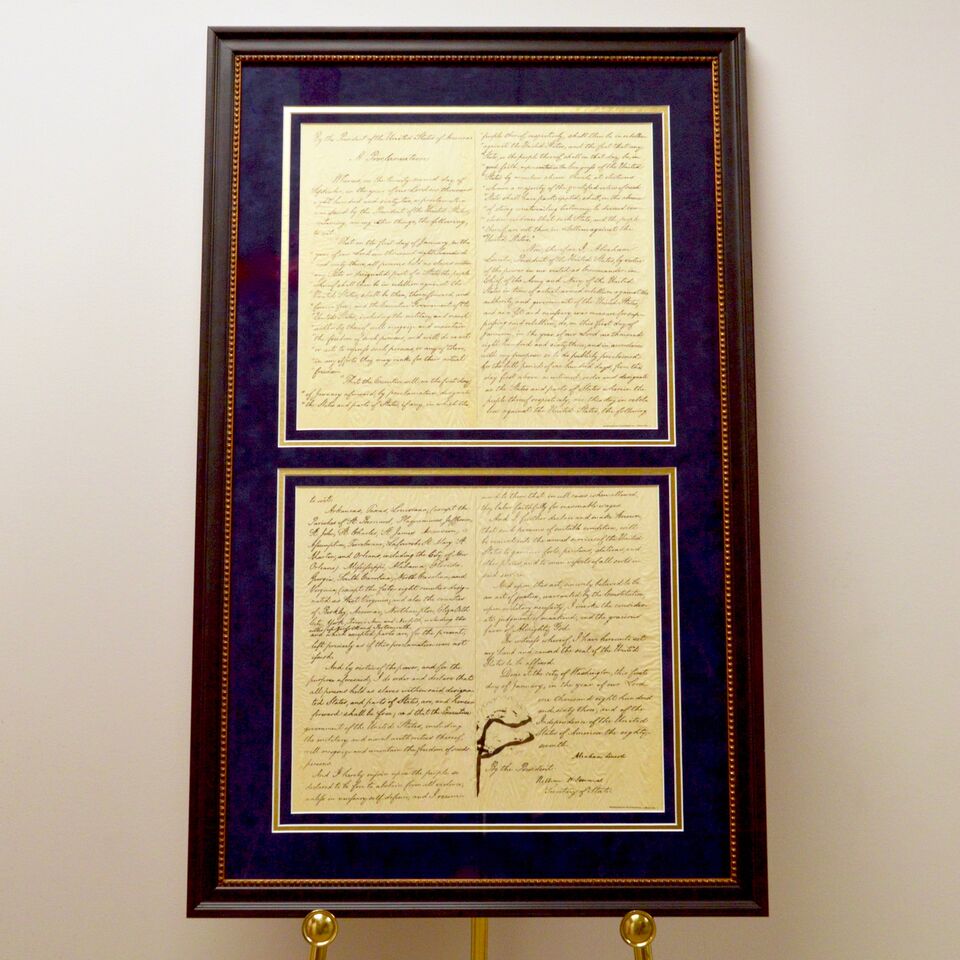 By the President of the United States of America
A Proclamation
Whereas, on the twenty-second day of
September, in the year of our Lord one thousand
eight hundred and sixty two, a proclamation
was issued by the President of the United States,
containing, among other things, the following,
to wit:
"That on the first day of January, in the
year of our Lord one thousand eight hundred
and sixty-three, all persons held as slaves within
any State or designated part of a State, the people
whereof shall then be in rebellion against the
United States, shall be then, thenceforward, and
forever free; and the Executive Government of the
United States, including the military and naval
authority thereof, will recognize and maintain
the freedom of such persons, and will do no act
or acts to repress such persons, or any of them,
in any efforts they may make for their actual
freedom.
"That the Executive will, on the first day
"of January aforesaid, by proclamation, designate
"the States and parts of States, if any, in which the
people thereof, respectively, shall then be in rebellion
against the United States; and the fact that any
State, or the people thereof, shall on that day be, in
good faith, represented in the Congress of the United
States by members chosen thereto at elections
wherein a majority of the qualified voters of such
State shall have participated, shall, in the absence
of strong countervailing testimony, be deemed con-
clusive evidence that such State, and the people
thereof, are not then in rebellion against the
United States."
Now, therefore I, Abraham
Lincoln, President of the United States, by virtue
of the power in me vested as Commander-in-
Chief, of the Army and Navy of the United
States in time of actual armed rebellion against the
authority and government of the United States,
and as a fit and necessary war measure for sup-
pressing said rebellion, do, on this first day of
January, in the year of our Lord one thousand
eight hundred and sixty three, and in accordance
with my purpose so to do publicly proclaimed
for the full period of one hundred days, from the
day first above mentioned, order and designate
as the States and parts of States wherein the
people thereof respectively, are this day in rebel-
lion against the United States, the following
to wit:
Arkansas, Texas, Louisiana, (except the
Parishes of St. Bernard, Plaquemines, Jefferson,
St. John, St. Charles, St. James, Ascension,
Assumption, Terrebonne, Lafourche, St. Mary, St.
Martin, and Orleans, including the City of New
Orleans) Mississippi, Alabama, Florida,
Georgia, South Carolina, North Carolina, and
Virginia, (except the forty-eight counties desig-
nated as West Virginia, and also the counties
of Berkley, Accomac, Northampton, Elizabeth
City, York, Princess Ann, and Norfolk, including the
cities of Norfolk and Portsmouth
and which excepted parts are, for the present,
left precisely as if this proclamation were not
issued.
And by virtue of the power, and for the
purpose aforesaid, I do order and declare that
all persons held as slaves within said designa-
ted States, and parts of States, are, and hence-
forward shall be free; and that the Executive
government of the United States, including
the military and naval authorities thereof,
will recognize and maintain the freedom of said
persons.
And I hereby enjoin upon the people so
declared to be free to abstain from all violence,
unless in necessary self-defence; and I recom-
mend to them that, in all cases when allowed,
they labor faithfully for reasonable wages.
And I further declare and make known,
that such persons of suitable condition, will
be received into the armed service of the United
States to garrison forts, positions, stations, and
other places, and to man vessels of all sorts in
said service.
And upon this act, sincerely believed to be
an act of justice, warranted by the Constitution,
upon military necessity, I invoke the considerate
judgment of mankind, and the gracious
favor of Almighty God.
In witness whereof, I have hereunto set
my hand and caused the seal of the United
States to be affixed.
Done at the city of Washington, this first
day of January, in the year of our Lord
one thousand eight hundred
and sixty three, and of the
Independence of the United
States of America the eighty-
seventh.
Abraham Lincoln
By the President:
William H. Seward
Secretary of State